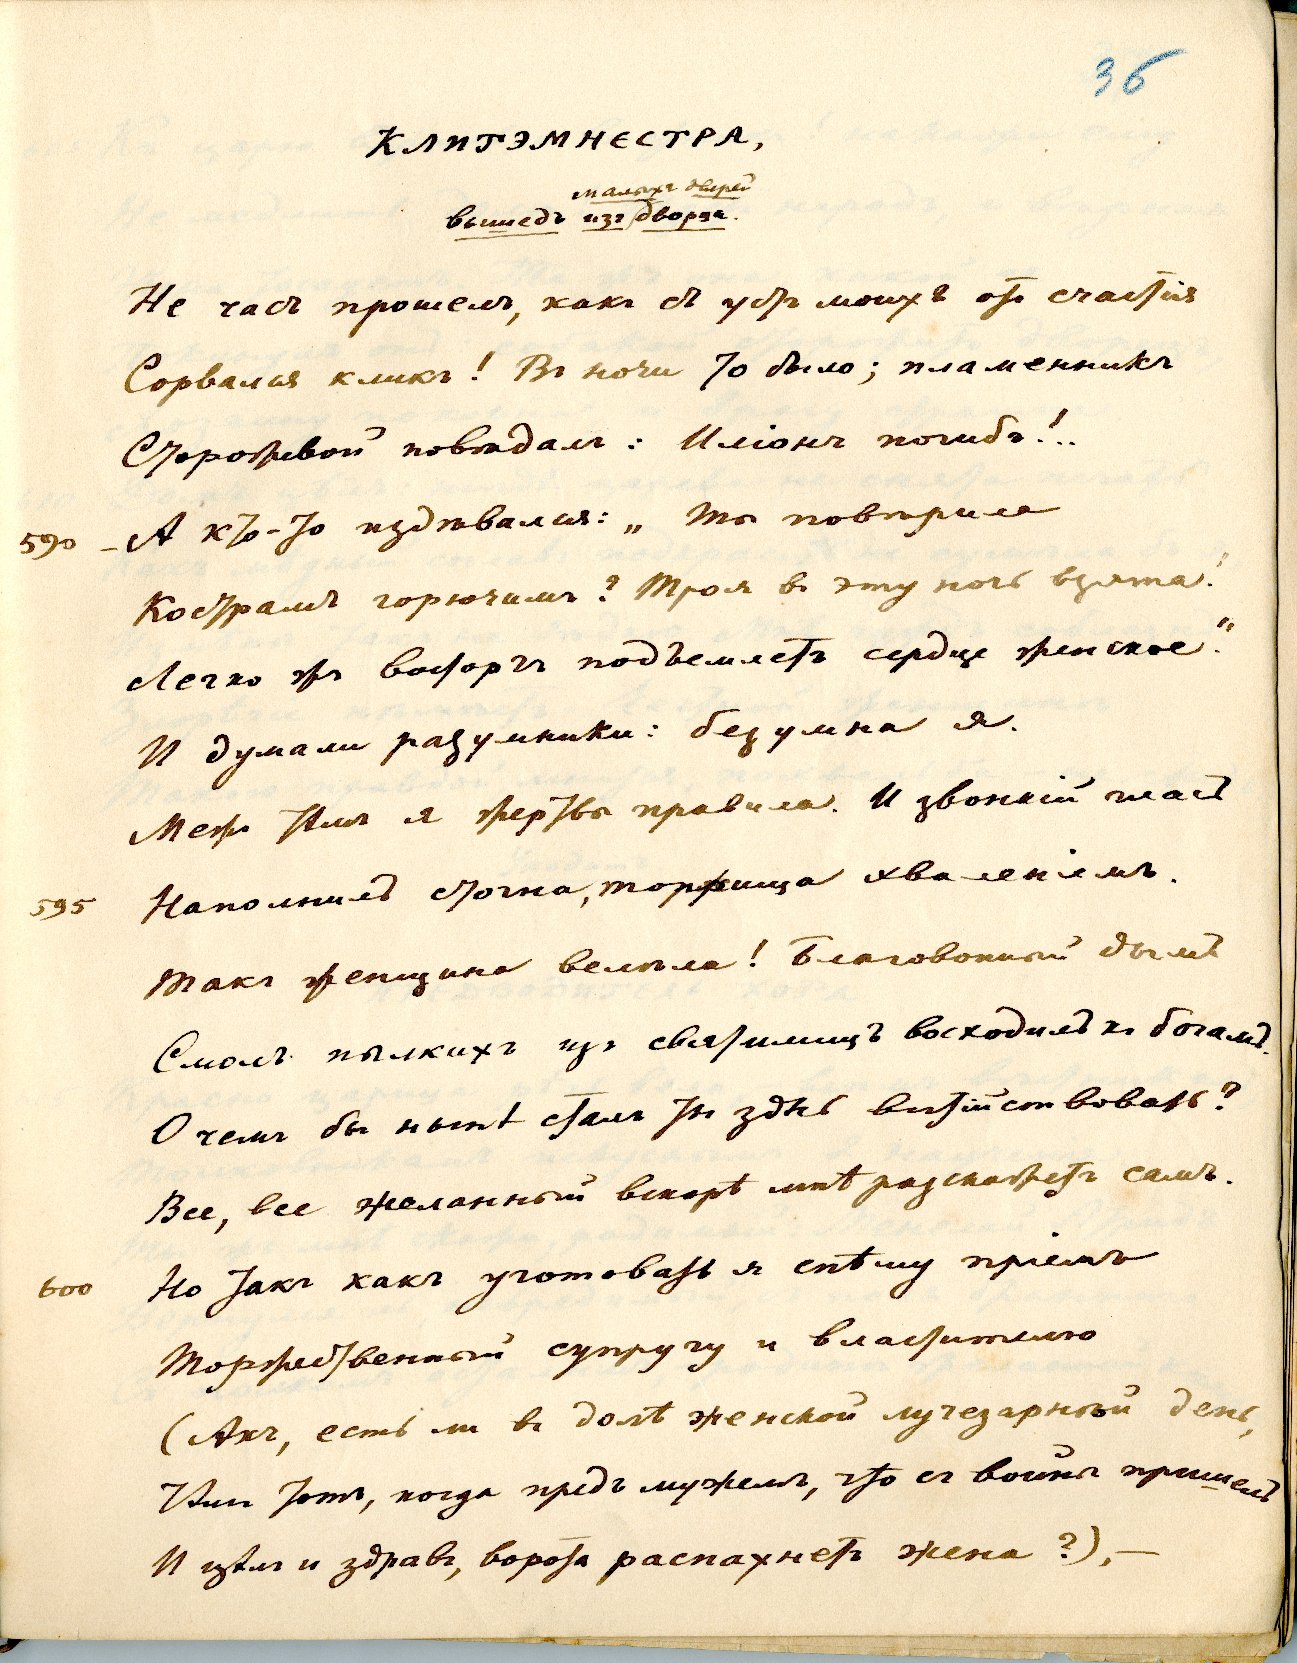 36
КЛИТЭМНЕСТРА,
малыхъ дверей
вышедъ изъ дворца.
Не часъ прошелъ, какъ съ устъ моихъ отъ счастія
Сорвался кликъ! Въ ночи то было; пламенникъ
Сторожевой повѣдалъ: Иліонъ погибъ!..
590 – А кто-то издѣвался: „Ты повѣрила
Кострамъ горючимъ? Троя въ эту ночь взята!
Легко жъ восторгъ подъемлетъ сердце женское".
И думали разумники: безумна я.
Межъ тѣмъ я жертвы правила. И звонкій гласъ
595 Наполнилъ стогна, торжища хваленіемъ.
Такъ женщина велѣла! Благовонный дымъ
Смолъ пылкихъ изъ святилищъ восходилъ къ богамъ.
О чемъ бы нынѣ сталъ ты здѣсь витійствовать?
Все, все желанный вскорѣ мнѣ разскажетъ самъ.
600 Но такъ какъ уготовать я спѣшу пріемъ
Торжественный супругу и властителю
(Ахъ, есть ли въ долѣ женской лучезарный день,
Чѣмъ тотъ, когда предъ мужемъ, что съ войны пришелъ
И цѣлъ и здравъ, ворота распахнетъ жена?),—